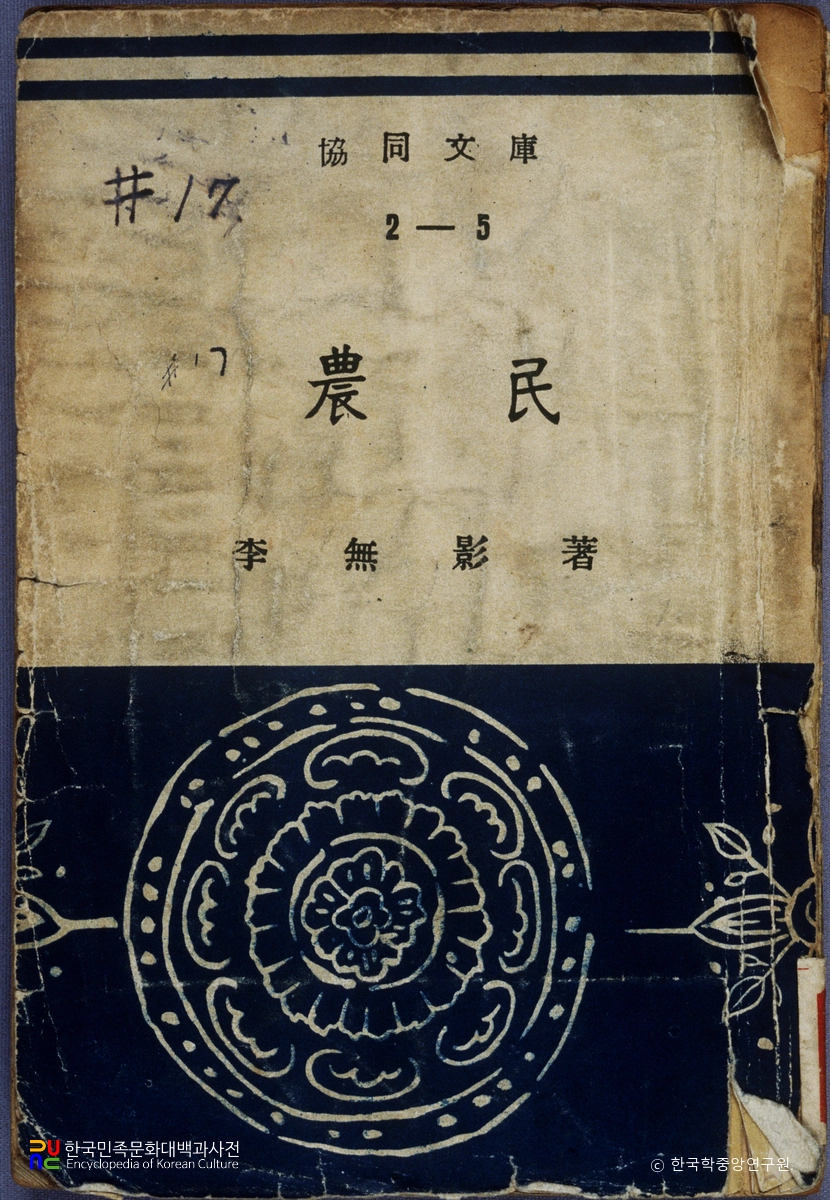 協同文庫
#17
2—5
#17
農民
李無影著
한국민족문화대백과사전
Encyclopedia of Korean Culture
© 한국학중앙연구원